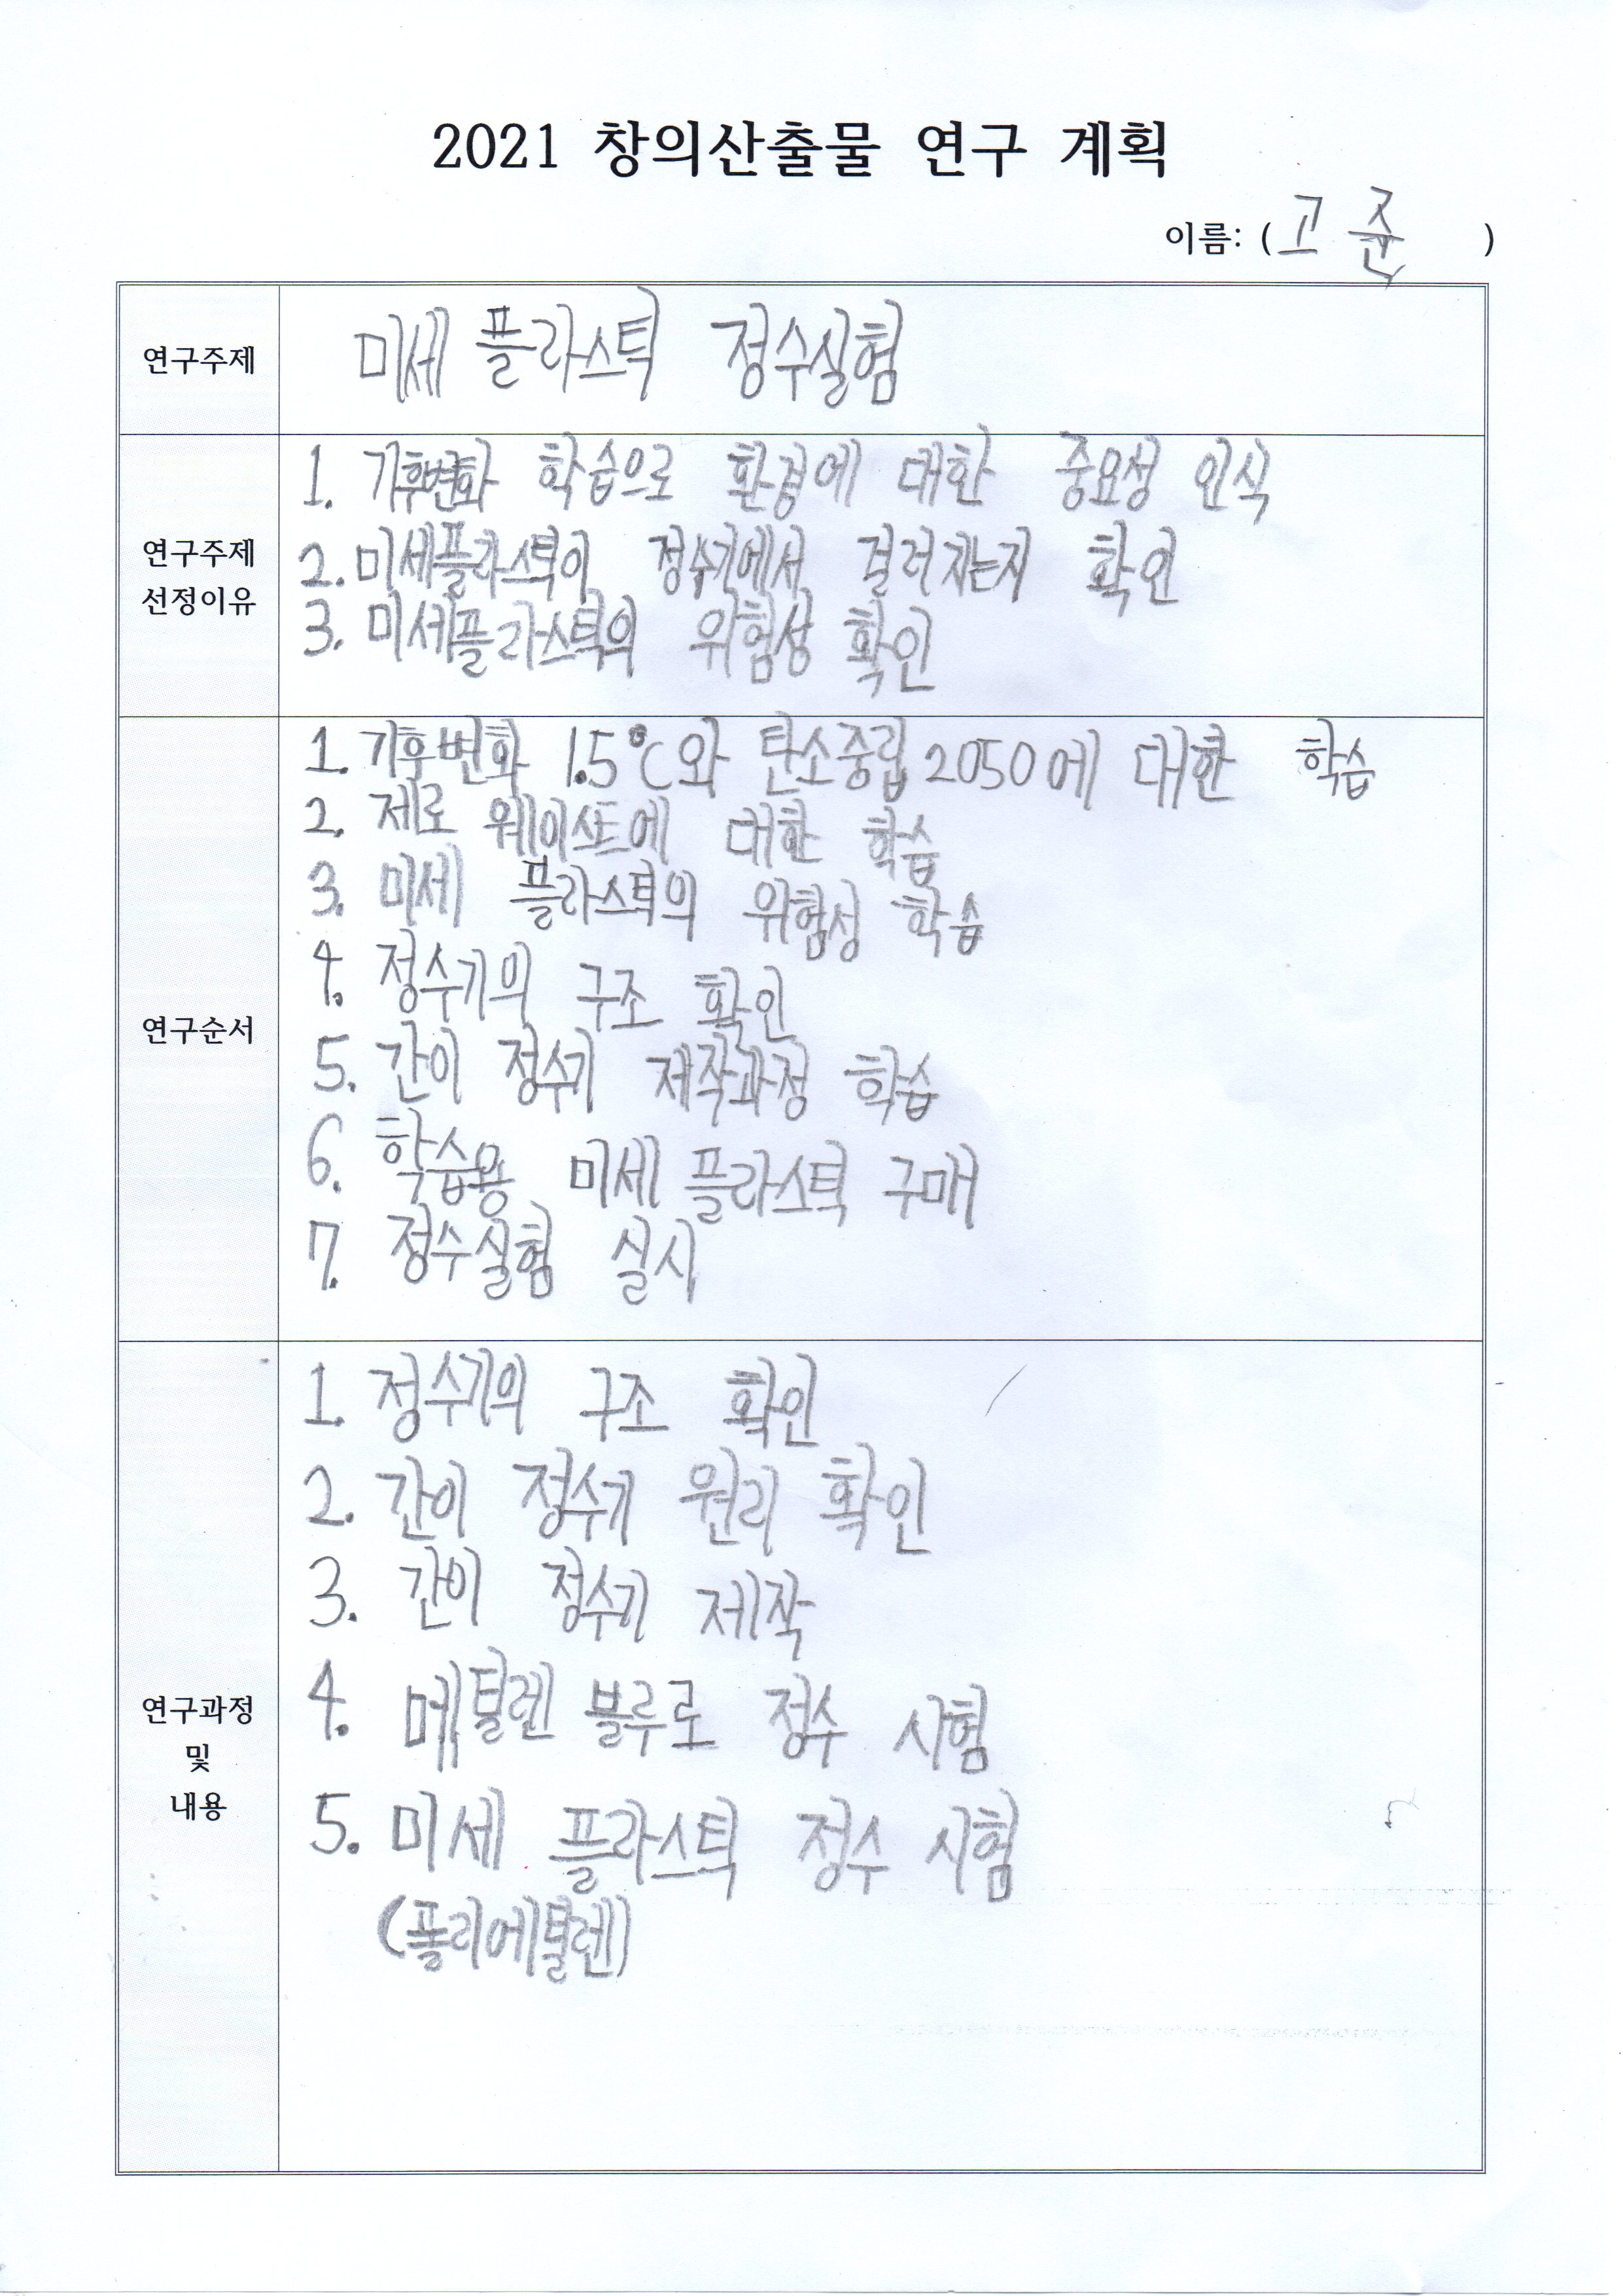 2021 창의산출물 연구 계획
이름: (고 준 )
연구주제
미세 플라스틱 정수실험
연구주제
선정이유
1. 기후변화 학습으로 환경에 대한 중요성 인식
2. 미세플라스틱이 정수기에서 걸러지는지 확인
3. 미세플라스틱의 위험성 확인
연구순서
1. 기후변화 1.5℃와 탄소중립 2050에 대한 학습
2. 제로 웨이스트에 대한 학습
3. 미세 플라스틱의 위험성 학습
4. 정수기의 구조 확인
5. 간이 정수기 제작과정 학습
6. 학습용 미세 플라스틱 구매
7. 정수실험 실시
연구과정
및
내용
1. 정수기의 구조 확인
2. 간이 정수기 원리 확인
3. 간이 정수기 제작
4. 메틸렌 블루로 정수 시험
5. 미세 플라스틱 정수 시험
(폴리에틸렌)